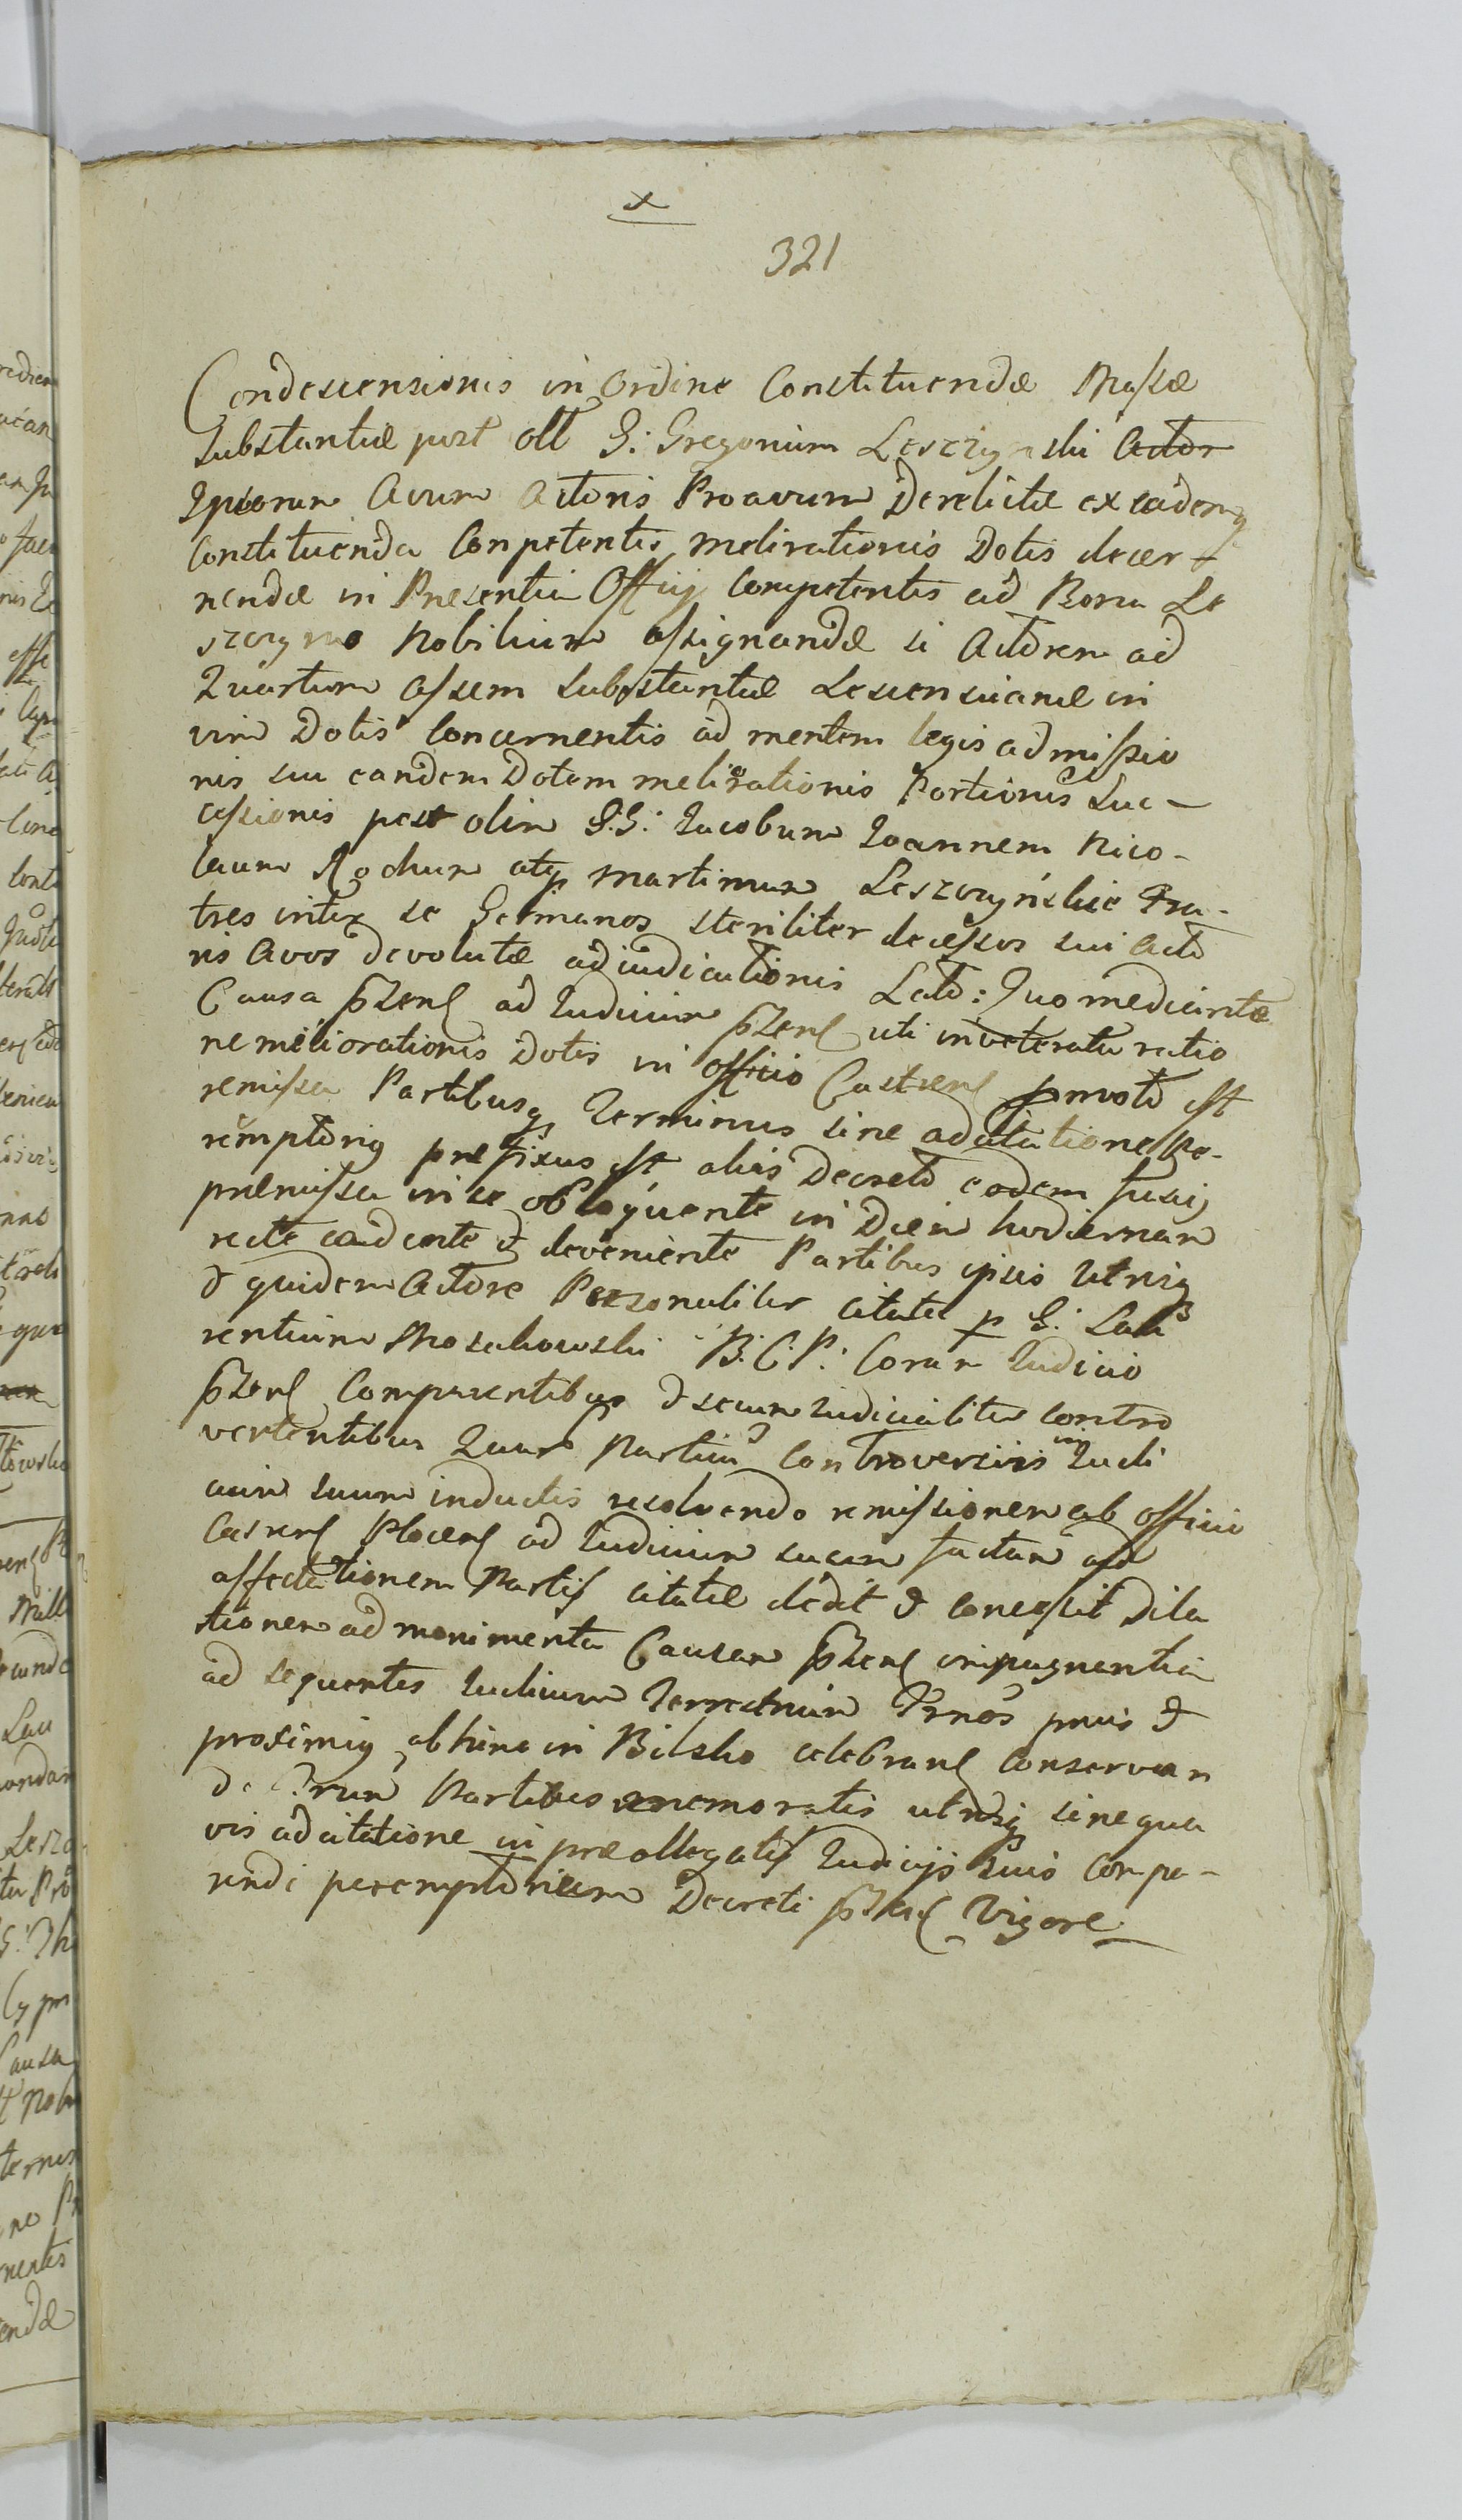 x
321
Condescensionis in Ordine Constituendæ Massæ
Substantiæ post olt G: Gregorium Leszczynski Actor
Ipsorum Avum Actoris Proavum Derelictæ ex eademq
Constituenda Competentis meliorationis Dotis decer
nendæ in Presentia Officij Competentis ad Bona Le
szczyno Nobilium assignandæ si Actorem ad
Quartum assem Substantiæ Lescensianæ in
vim Dotis Concernentis ad mentem legis admissio
nis suu eandem Dotem meliorationis Portionis Suc-
cessionis post olim G.G: Jacobum Joannem Nico-
laum Rochum atq martinum Leszczyńskie Fra-
tres inter se Germanos steriliter decessos sui Acto
ris Avos devolutæ adiudicationis Lato: Quo mediante
Causa pszens ad Judicium pszens uti inveterata ratio
ne meliorationis Dotis in officio Castrens pmoto est
remissa Partibusq Terminus sine adcitatione Pe-
remptorig præfixus est alias Decreto eodem fusig
præmissa in se obloquente in Diem hodiernam
recte cadente & deveniente Partibus ipsis Utrisq
& quidem Actore Personaliter citata p G: Lau
rentium Mosakowski B:C:P: Coram Judicio
pszens Comparentibus & secum Judicialiter contro
vertentibus Quar Partium Controversiis in Judi
cium suum inductis resolvendo remissionem ab officio
Casrens Plocens ad Judicium suum factam ad
affectationem Partis citatæ dedit & concessit Dila
tionem ad monimenta Causam pszens impugnantia
ad sequentes Judicium Terrestrium Trnos prius &
proximig abhinc in Bilsko celebrans Conservan
Partibus memoratis utrisq sine qua
vis adcitatione in præallegatis Judicijs suis Compa-
rendi peremptorium Decreti pszens Vigore